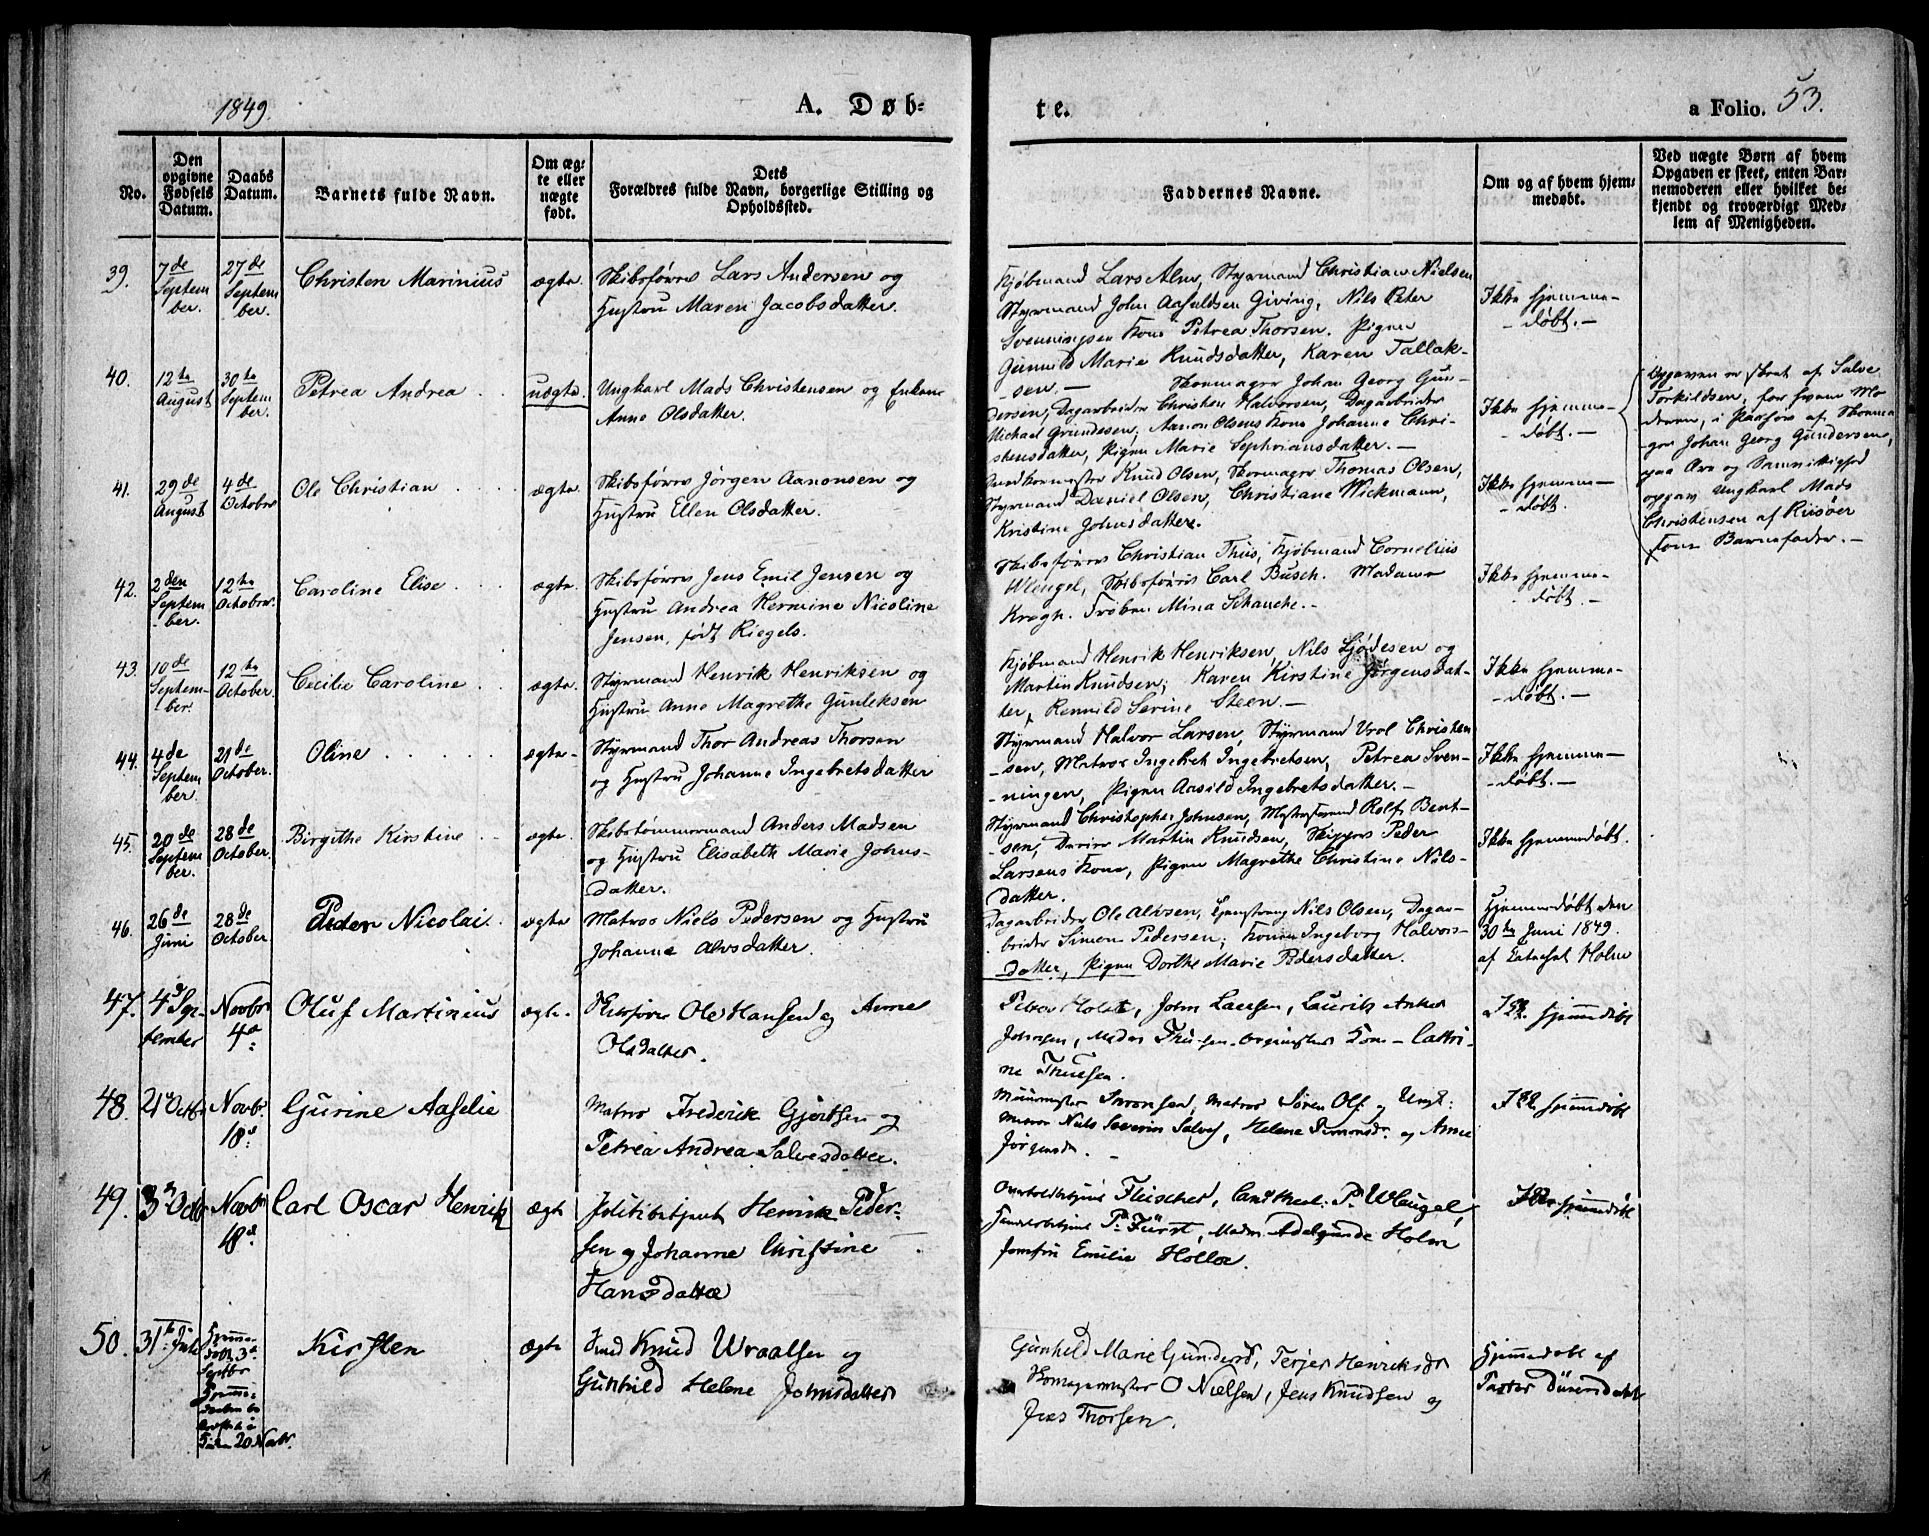 1849.
A. Døb=
te.
a Folio. 53.
No.
Den
opgivne
Fødsels
Datum.
Daabs
Datum.
Barnets fulde Navn.
Om æg=
te eller
uægte
født.
Dets
Forældres fulde Navn, borgerlige Stilling og
Opholdssted.
Faddernes Navne.
Om og af hvem hjem=
medøbt.
Ved uægte Børn af hvem
Opgaven er skeet, enten Bar=
nemoderen eller hvilket be=
kjendt og troværdigt Med=
lem af Menigheden.
39.
7de
Septem
ber.
27de
Septem
ber.
Christen Marinius
ægte.
Skibsfører Lars Andersen og
Hustru Maren Jacobsdatter.
Kjøbmand Lars Alm, Styrmand Christian Nielsen
Styrmand John Aasuldsen Giving, Nils Peter
Svenningsen Kone Petrea Thorsen. Pigen
Gunnild Marie Knudsdatter, Karen Tallak-
sen. —
Ikke hjemme-
- døbt. -
40.
12te
August
30te
Septem
ber.
Petrea Andrea
uægte.
Ungkarl Mads Christensen og Enken
Anne Olsdatter.
Skomager Johan Georg Gun-
dersen, Dagarbeider Christen Halvorsen, Dagarbeider
Michael Gundesen, Aanon Olsens Kone Johanne Chri-
stensdatter, Pigen Marie Sephriansdatter. —
Ikke hjemme-
- døbt. -
Opgaven er skeet af Salve
Torkildsen, for hvem Mo
deren, i Paahør af Skoma
ger Johan Georg Gundersen,
paa Ære og Samvittighed
opgav Ungkarl Mads
Christensen af Riisøer
som Barnefader. —
41.
29de
August
4de
October
Ole Christian
ægte.
Skibsfører Jørgen Aanonsen og
Hustru Ellen Olsdatter.
Knud Olsen, Skomager Thomas Olsen,
Styrmand Daniel Olsen, Christiane Wickmann,
Kristine Johnsdatter.
Ikke hjemme-
- døbt.
42.
2den
Septem
ber.
12te
October.
Caroline Elise
ægte.
Skibsfører Jens Emil Jensen og
Hustru Andrea Hermine Nicoline
Jensen, født Riegels.
Skibsfører Christian Thiis, Kjøbmand Cornelius
Weugel, Skibsfører Carl Busch. Madame
Kragh. Frøken Mina Schanche. -
Ikke hjemme-
- døbt. -
43.
10de
Septem-
ber.
12te
October.
Cecilie Caroline
ægte.
Styrmand Henrik Henriksen og
Hustru Anne Magrethe Gunleksen
Kjøbmand Henrik Henriksen, Nils Ljødesen og
Martin Knudsen; Karen Kirstine Jørgensdat-
ter, Rennild Serine Steen. -
Ikke hjemme-
- døbt. -
44.
4de
Septem
ber.
21de
October.
Oline
ægte.
Styrmand Thor Andreas Thorsen
og Hustru Johanne Ingebretsdatter
Styrmand Halvor Larsen, Styrmand Vrol Christen
-sen, Matros Ingebret Ingebretsen, Petrea Sven-
-ningen, Pigen Aasild Ingebretsdatter. -
Ikke hjemme-
- døbt. -
45.
20de
Septem
ber.
28de
October.
Birgithe Kirstine
ægte.
Skibstømmermand Anders Madsen
og Hustru Elisabeth Marie Johns-
datter.
Styrmand Christopher Johnsen, Rolf Bent-
-sen, Martin Knudsen, Skipper Peder
Larsens Kone, Pigen Magrethe Christine Nils-
datter.
Ikke hjemmedøbt.
46.
26de
Juni
28de
October
Peder Nicolai.
ægte
Matros Niels Pedersen og Hustru
Johanne Alvsdatter.
Dagarbeider Ole Alvsen, Nils Olsen, Dagar-
beider Simon Pedersen; Konen Ingeborg Halvors-
datter, Pigen Dorthe Marie Pedersdatter.
Hjemmedøbt den
30te Juni 1849.
af Holm
47.
4d Sep-
tember
Novbr
4de
Oluf Martinius
ægte.
Skibsfører Ole Hansen og Anne
Olsdatter.
Peter Holst, John Larsen, Laurits Anker
Johnsen, Kone - Cathri-
ne Thuesen.
Ikke hjemmedøbt
48.
21d Octbr
Novbr
18d
Gurine Aaselie
Matros Frederik Gjertsen og
Petrea Andrea Salvesdatter.
Sørensen, Matros Søren Ols. og Ungk:
Niels Severin Salves, Helene Simonsdr. og Anne
Jørgensdr. -
Ikke hjemmedøbt
49.
3d Octbr
Novbr
18d
Carl Oscar Henrik
ægte
Politibetjent Henrik Peder-
sen og Johanne Christine
Hansdatter
Fleischer, Cand theol: P. Weugel,
P. Fürst, Mad. Adelgunde Holm
Jomfru Emilie Holloe.
Ikke hjemmedøbt
50.
31te Juli
Hjemme-
døbt 3d
Septbr
20 Novbr.
Kirsten
ægte
Knud Wraalsen og
Gunhild Helene Johnsdatter
Gunhild Marie Gundersd, Terjer Henriksdr
Skomagermester O Nielsen, Jens Knudsen og
Jens Thorsen.
Hjemmedøbt af